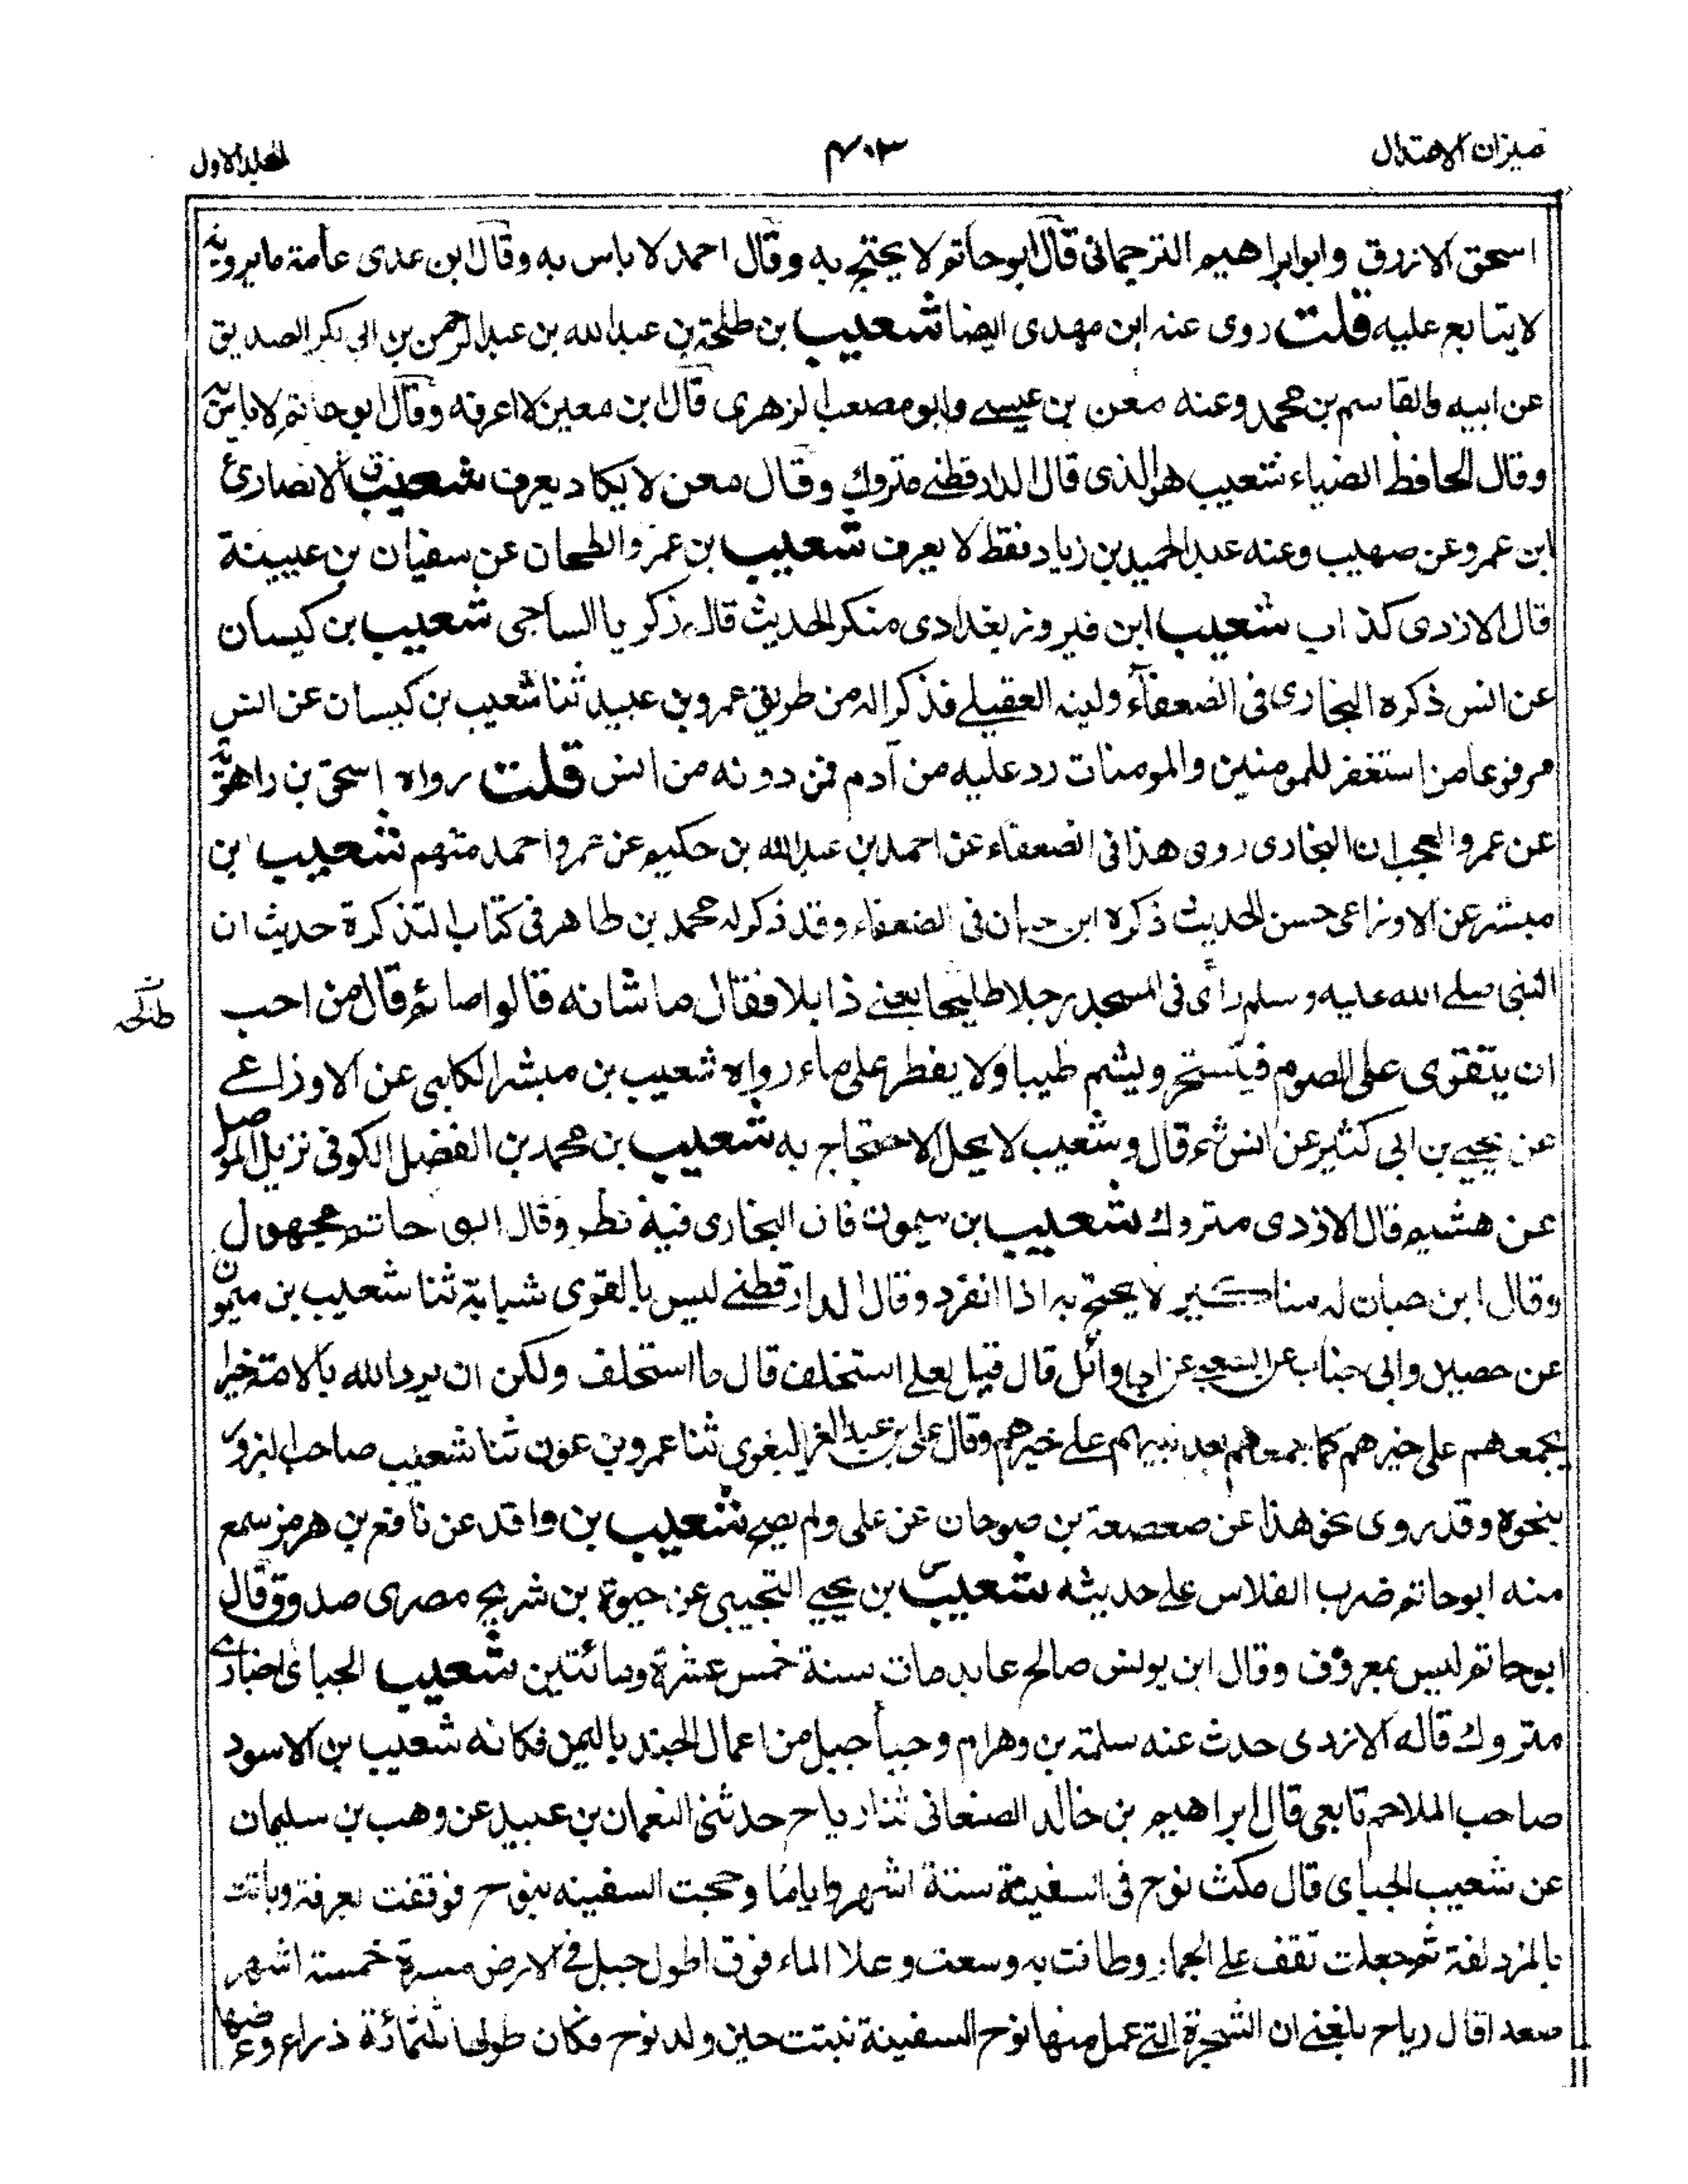 ميزان الاعتدال
٤٠٣
المجلد الاول
اسحق الازرق وابو ابراهيم الترجمانى قال ابو حاتم لا يحتج به وقال احمد لا باس به وقال ابن عدى عامة ما يرويه
لا يتابع عليه قلت روى عنه ابن مهدى ايضا شعيب بن طلحة بن عبد الله بن عبد الرحمن بن ابى بكر الصديق
عن ابيه والقاسم بن محمد وعنه معن بن عيسے وابو مصعب الزهرى قال ابن معين لا اعرفه وقال ابو حاتم لا باس به
وقال الحافظ الضياء شعيب هو الذى قال الدارقطنے متروك وقال معن لا يكاد يعرف شعيب الانصارى
ابن عمرو عن صهيب وعنه عبد الحميد بن زياد فقط لا يعرف شعيب بن عمرو الطحان عن سفيان بن عيينة
قال الازدى كذاب شعيب ابن فيروز بغدادى منكر الحديث قاله زكريا الساجى شعيب بن كيسان
عن انس ذكره البخارى فى الضعفآء ولينه العقيلے فذكر له من طريق عمرو بن عبيد ثنا شعيب بن كيسان عن انس
مرفوعا من استغفر للمومنين والمومنات رد عليه من آدم فمن دونه من انس قلت رواه اسحق بن راهويه
عن عمرو العجب ان البخارى روى هذا فى الضعفاء عن احمد بن عبد الله بن حكيم عن عمرو احمد متهم شعيب بن
مبشر عن الاوزاعى حسن الحديث ذكره ابن حبان فى الضعفاء وقد ذكر له محمد بن طاهر فى كتاب التذكرة حديث ان
النبى صلے الله عليه وسلم رأى فى المسجد رجلا طليحا يعنے ذابلا فقال ما شانه قالوا صائم قال من احب
ان يتقوى على الصوم فيتسحر ويشم طيبا ولا يفطر على ماء رواه شعيب بن مبشر الكلبى عن الاوزاعے
عن يحيے بن ابى كثير عن انس ثم قال وشعيب لا يحل الاحتجاج به شعيب بن محمد بن الفضل الكوفى نزيل الموصل
عن هشيم قال الازدى متروك شعيب بن ميمون قال البخارى فيه نظر وقال ابو حاتم مجهول
وقال ابن حبان له مناكير لا يحتج به اذا انفرد وقال الدارقطنے ليس بالقوى شبابة ثنا شعيب بن ميمون
عن حصين وابى جناب عن الشعبے عن ابى وائل قال قيل لعلے استخلف قال ما استخلف ولكن ان يرد الله بالامة خيرا
يجمعهم على خيرهم كما جمعهم بعد نبيهم علے خيرهم وقال على بن عبد العزيز البغوى ثنا عمرو بن عون ثنا شعيب صاحب البزور
بنحوه وقد روى نحو هذا عن صعصعة بن صوحان عن على ولم يصح شعيب بن واقد عن نافع بن هرمز سمع
منه ابو حاتم ضرب الفلاس علے حديثه شعيب س بن يحيے التجيبى عن حيوة بن شريح مصرى صدوق قال
ابو حاتم ليس بمعروف وقال ابن يونس صالح عابد مات سنة خمس عشرة ومائتين شعيب الجبائى اخبارى
متروك قاله الازدى حدث عنه سلمة بن وهرام وجبأ جبل من اعمال الجند باليمن فكانه شعيب بن الاسود
صاحب الملاحم تابعى قال ابراهيم بن خالد الصنعانى ثنا رياح حدثنى النعمان بن عبيد عن وهب بن سليمان
عن شعيب الجباى قال مكث نوح فى السفينة ستة اشهر واياما وحجت السفينه بنوح فوقفت بعرفة وباتت
بالمزدلفة ثم جعلت تقف على الجمار وطافت به وسعت وعلا الماء فوق اطول جبل فے الارض مسيرة خمسة اشهر
صعدا قال رياح بلغنے ان الشجرة التے عمل منها نوح السفينة نبتت حين ولد نوح فكان طولها ثلثمائة ذراع وعرضها